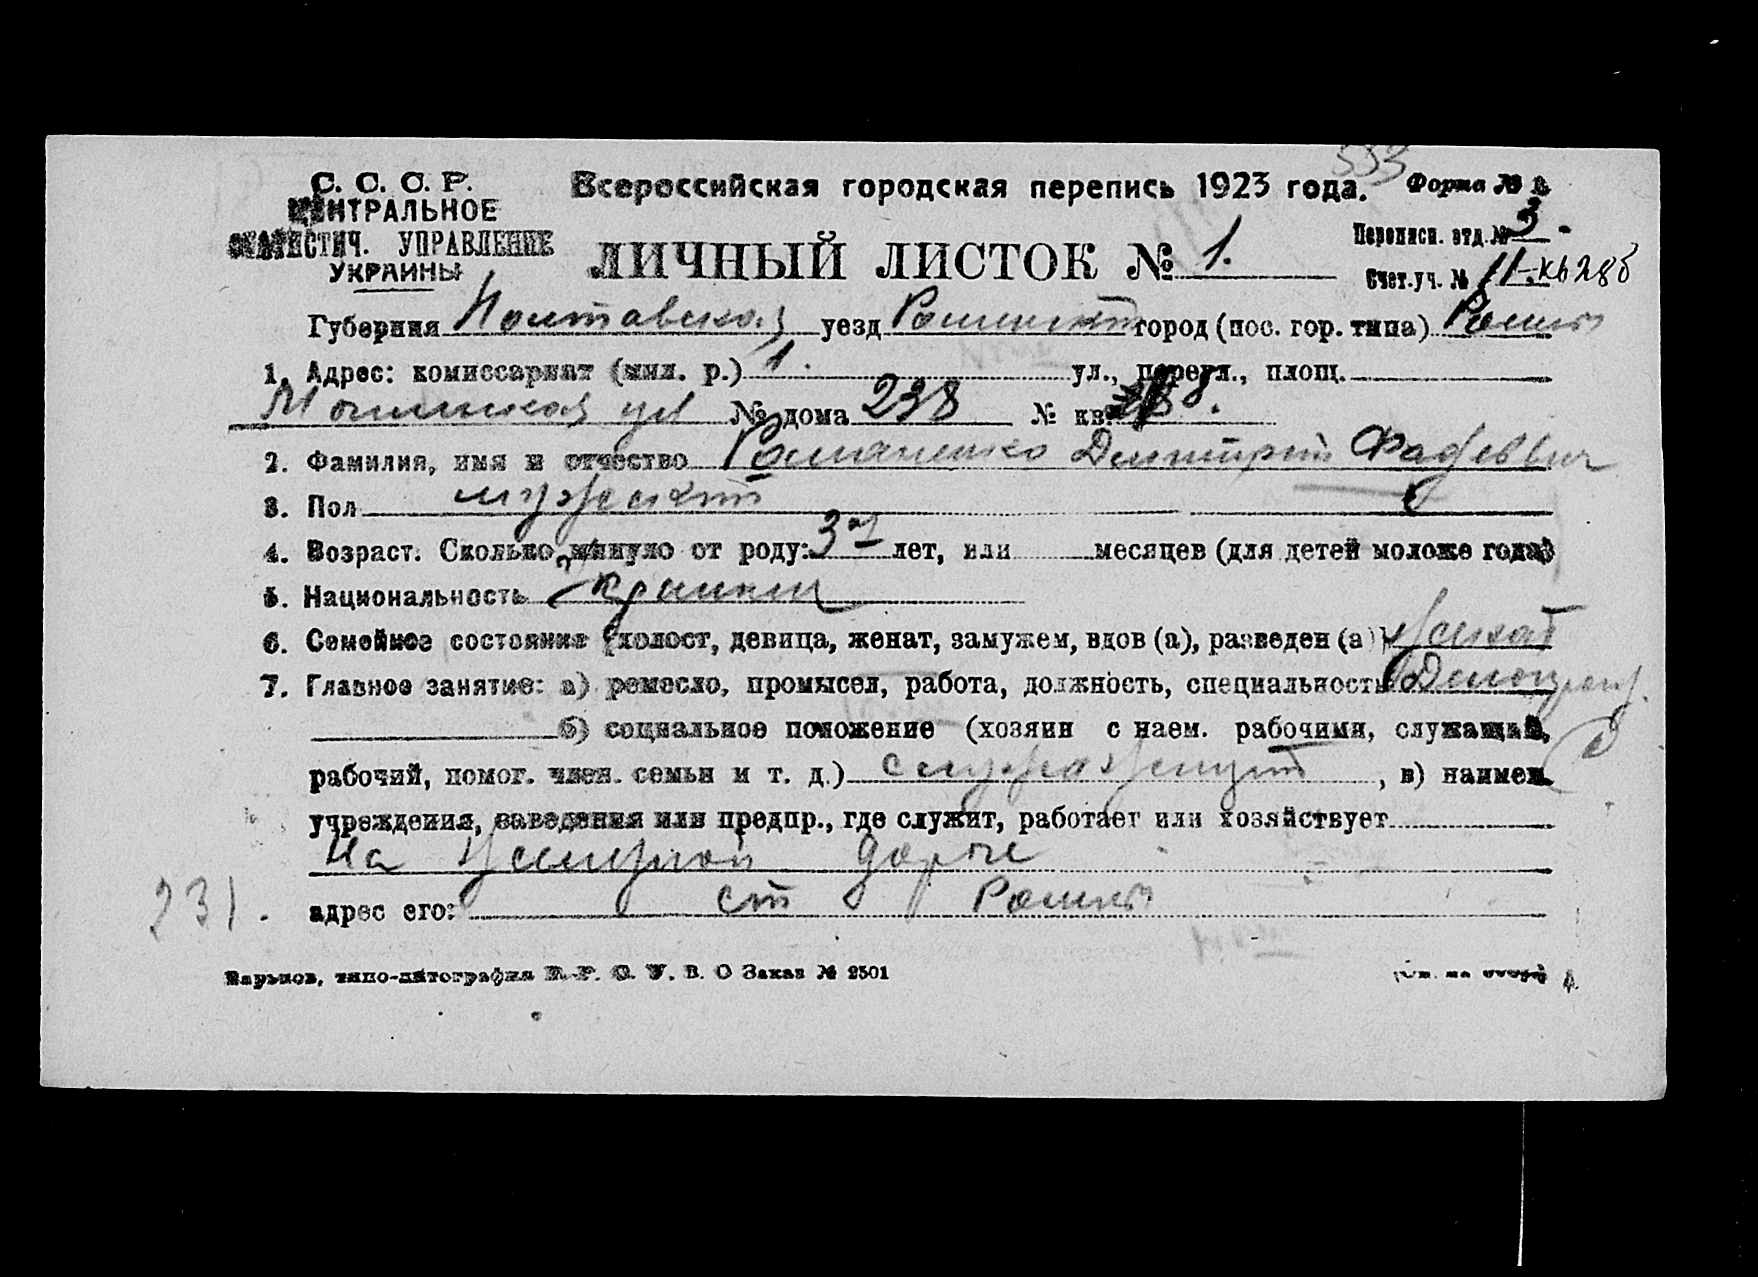 533
С. С. С. Р. Всероссийская городская перепись 1923 года. Форма №
ЦЕНТРАЛЬНОЕ
СТАТИСТИЧ. УПРАВЛЕНИЕ
УКРАИНЫ
ЛИЧНЫЙ ЛИСТОК № 1.
Переписн. отд. № 3
Счет. уч. № 11
Губерния Полтавская уезд Роменский город (пос. гор. типа) Ромны
1. Адрес: комиссариат (мил. р.) 1. ул., переул., площ.
ул № дома 238 № кв.
2. Фамилия, имя и отчество Романенко Дмитрий Фадеевич
3. Пол мужской
4. Возраст: Сколько минуло от роду: 37 лет, или месяцев (для детей моложе года)
5. Национальность
6. Семейное состояние (холост, девица, женат, замужем, вдов (а), разведен (а)) женат
7. Главное занятие: а) ремесло, промысел, работа, должность, специальность
б) социальное положение (хозяин с наем. рабочими, служащий,
рабочий, помог. член. семьи и т. д.) служащий, в) наимен.
учреждения, заведения или предпр., где служит, работает или хозяйствует
на железной дороге
231. адрес его: ст Ромны
Харьков, типо-литография В. У. В. О Заказ № 2501